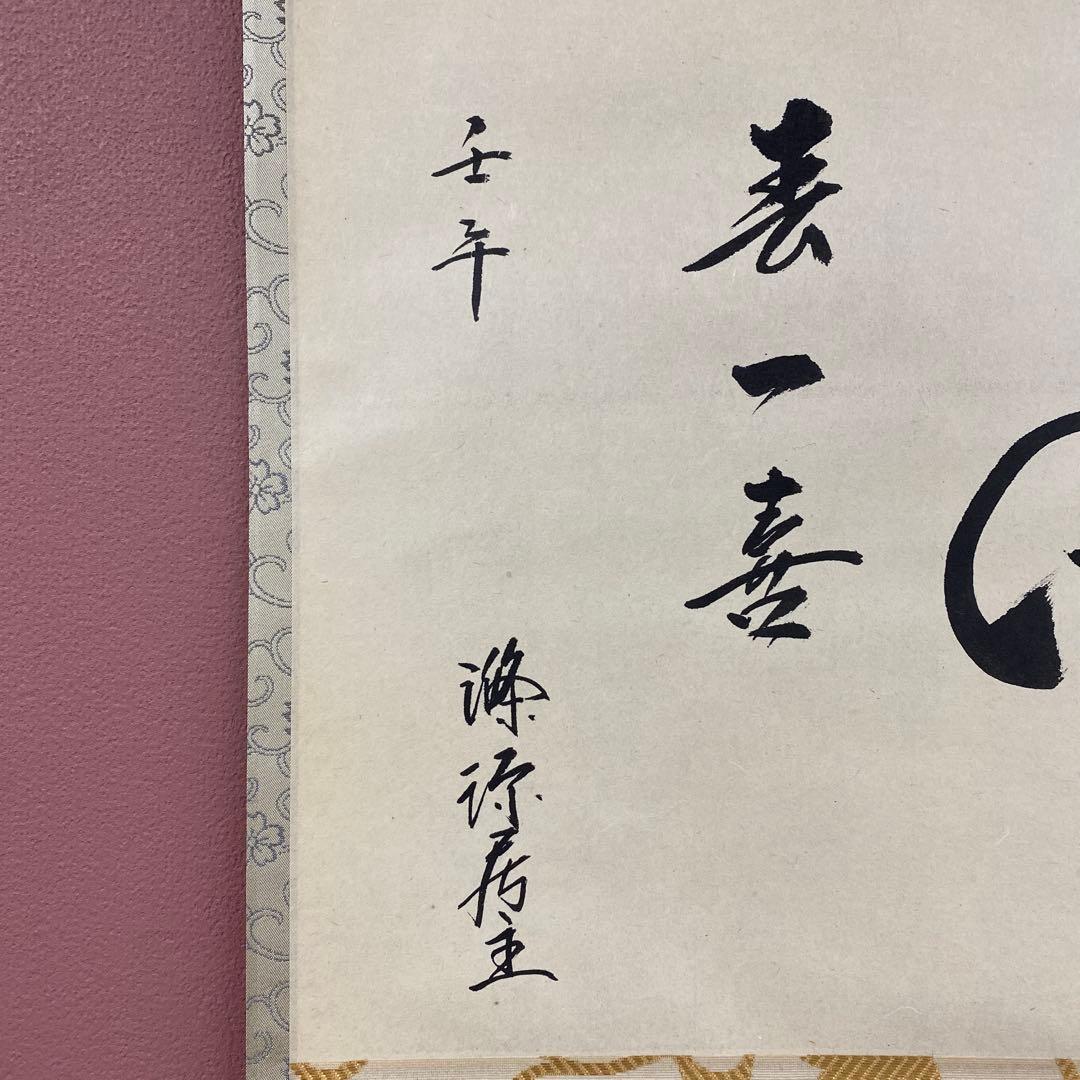 一喜
壬午
滌源居主